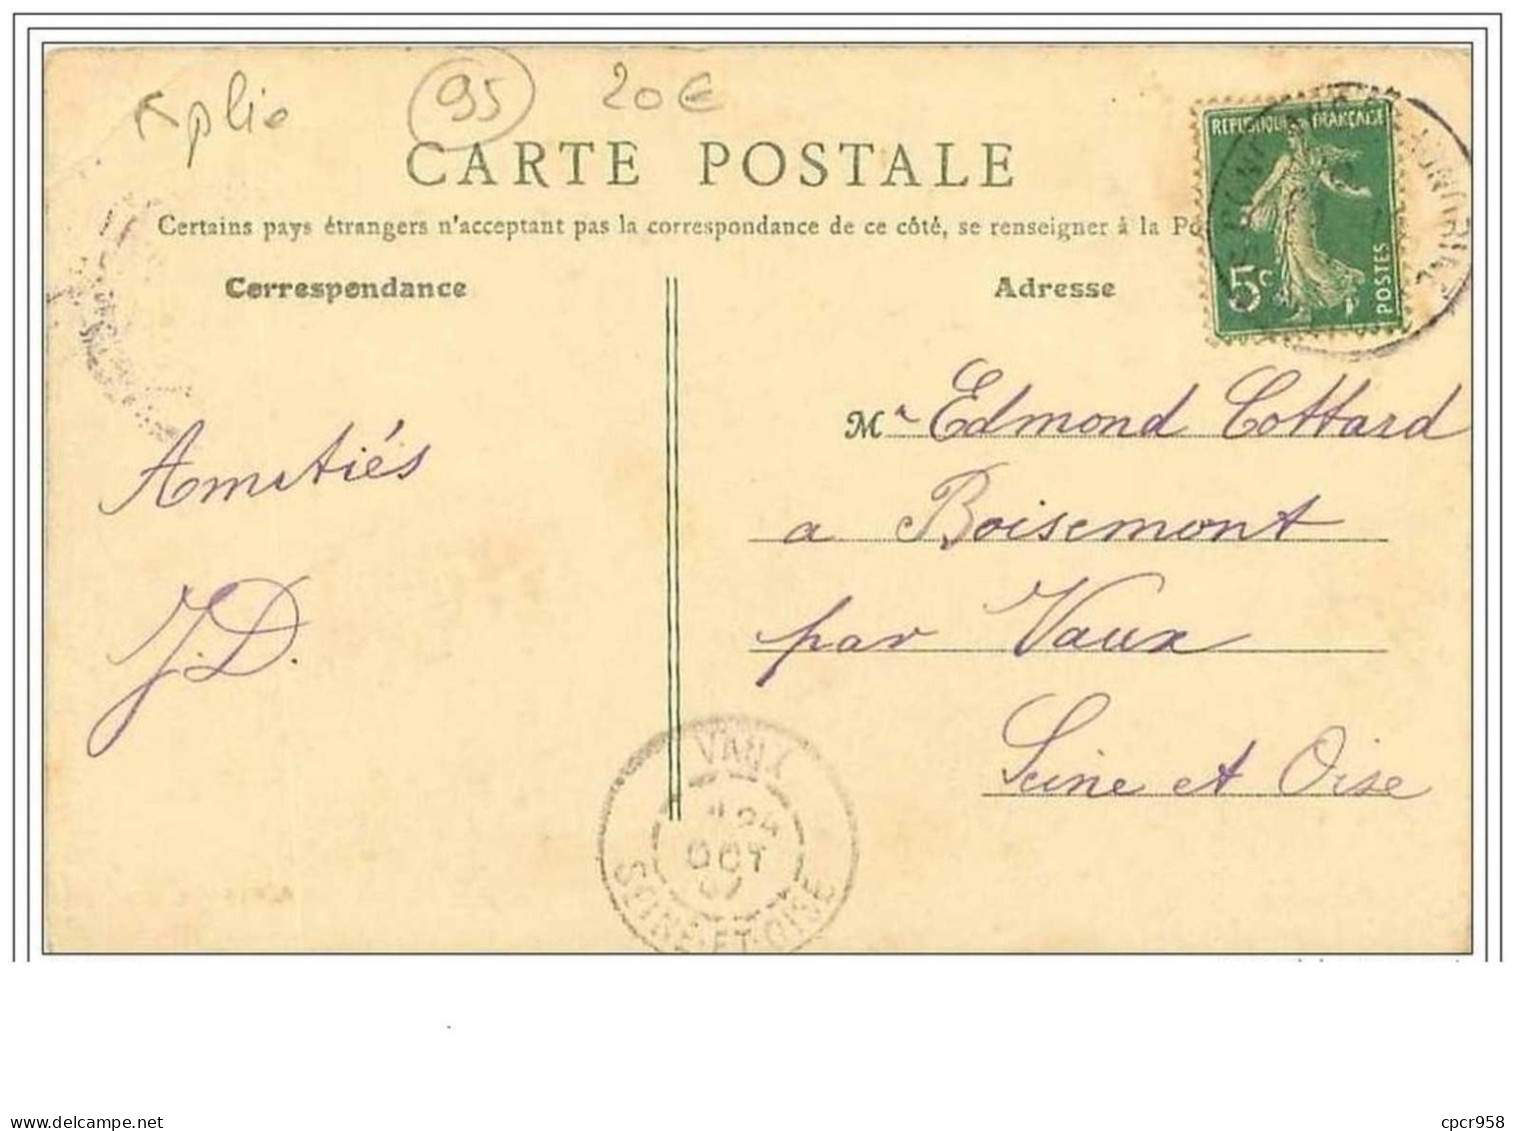 plie
95
20€
CARTE POSTALE
Certains pays étrangers n'acceptant pas la correspondance de ce côté, se renseigner à la
Correspondance
Adresse
REPUBLIQUE FRANÇAISE
5c
POSTES
Mr Edmond Cottard
a Boisemont
par Vaux
Seine et Oise
Amitiés
J.D.
VAUX
OCT
SEINE-ET-OISE
cpcr958